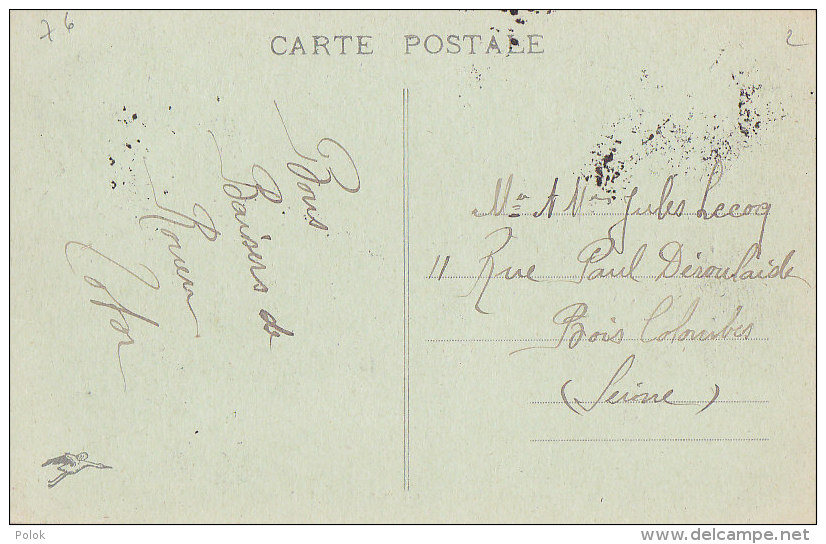 76
2
CARTE POSTALE
Bons
Baisers de
Rouen
Mr & Me Jules Lecoq
11 Rue Paul Déroulaide
Bois Colombes
(Seine)
Polok
www.delcampe.net